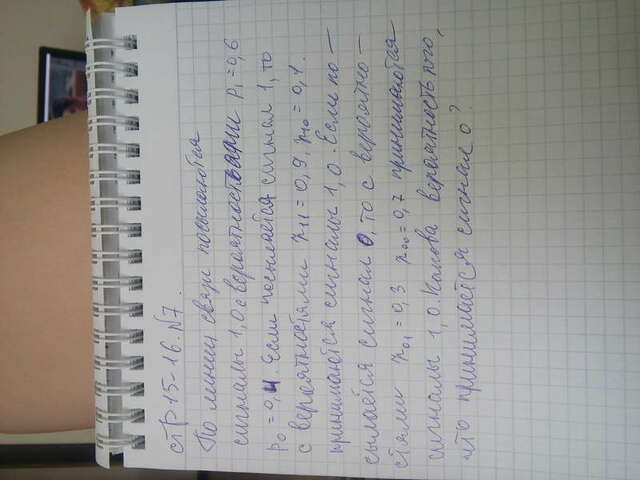 стр 15-16. N7.
По линии связи посылаются
сигналы 1,0 с вероятностями p₁=0,6
p₀=0,4. Если посылается сигнал 1, то
с вероятностями r₁₁=0,9, r₁₀=0,1.
принимаются сигналы 1,0. Если по-
сылается сигнал 0, то с вероятно-
стями r₀₁=0,3 r₀₀=0,7 принимаются
сигналы 1,0. Какова вероятность того,
что принимается сигнал 0?